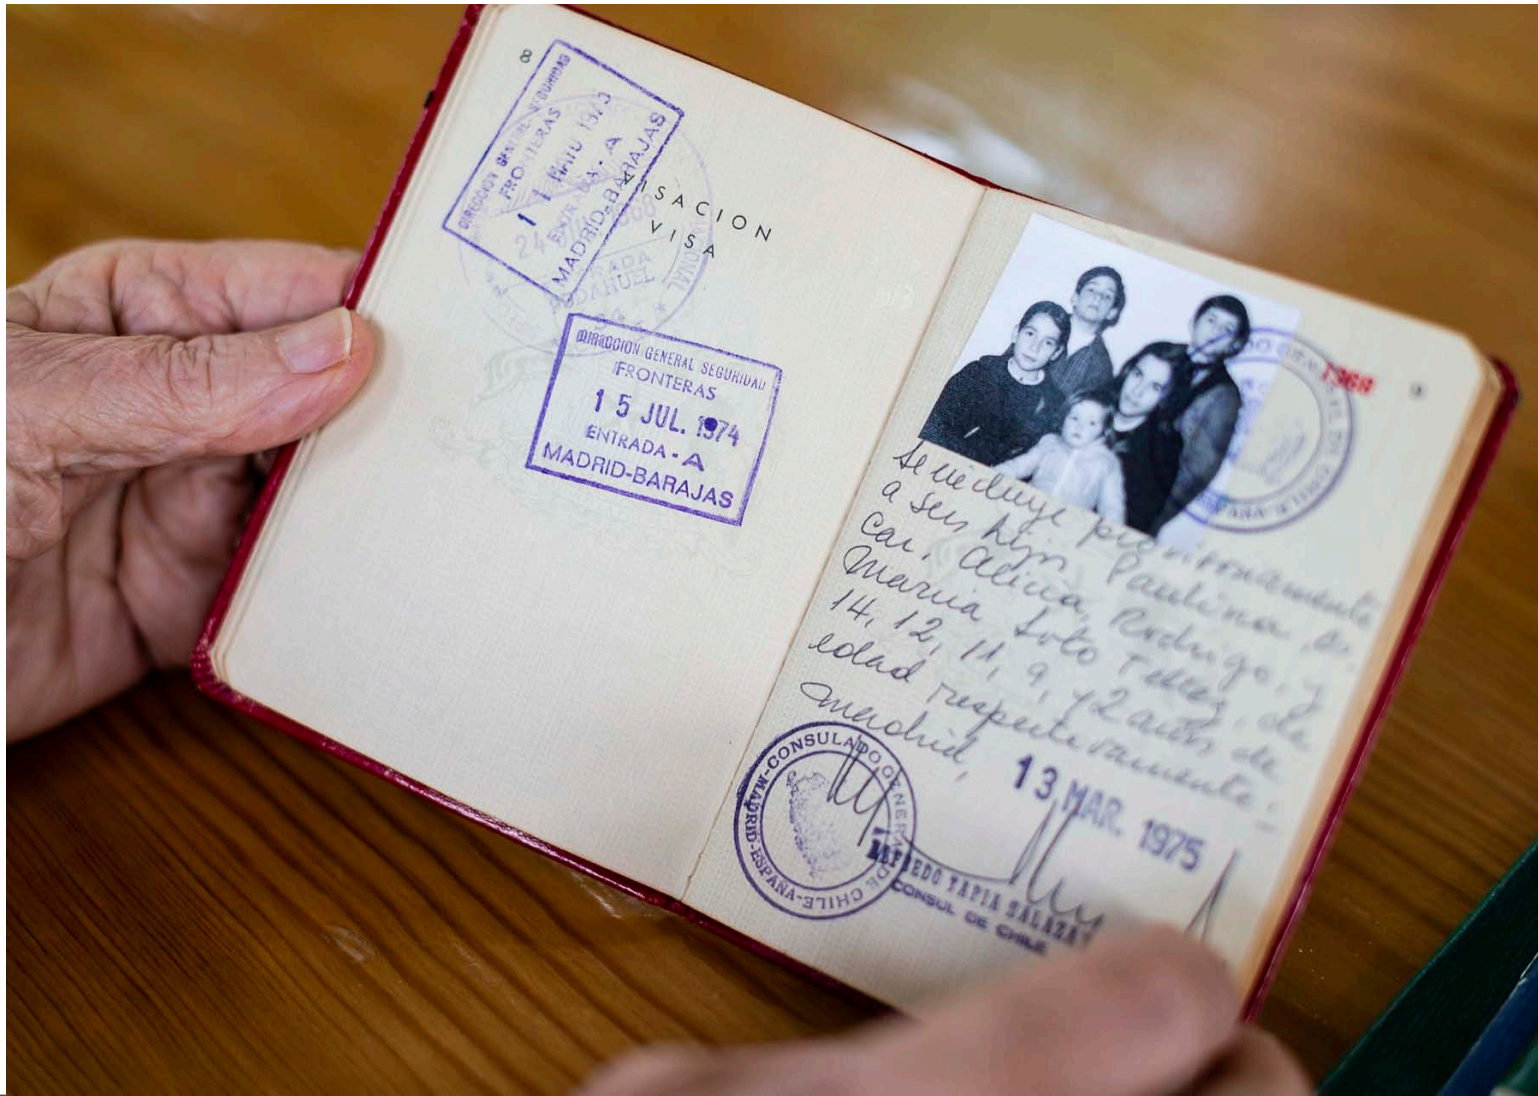 8
DIRECCION GENERAL SEGURIDAD
FRONTERAS
1 1 MAYO 1975
ENTRADA - A
MADRID-BARAJAS
24
ENTRADA
PUDAHUEL
VISACION
VISA
DIRECCION GENERAL SEGURIDAD
FRONTERAS
15 JUL. 1974
ENTRADA - A
MADRID-BARAJAS
1368
Se incluye provisoriamente
a sus hijos Paulina,
Alicia, Rodrigo, y
Maria Soto Tellez, de
14, 12, 11, 9, y 2 años de
edad respectivamente.-
Madrid,
13 MAR. 1975
CONSULADO GENERAL DE CHILE-MADRID-ESPAÑA-
ALFREDO TAPIA SALAZAR
CONSUL DE CHILE